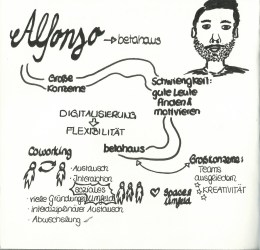 Alfonso → betahaus
Große
Konzerne
Schwierigkeit:
gute Leute
finden &
motivieren
DIGITALISIERUNG
FLEXIBILITÄT
betahaus
Coworking
· Austausch
· Interaktion
soziales
Umfeld
· viele Gründungen
· interdisziplinärer Austausch
· Abwechslung
Space &
Umfeld
Großkonzerne:
Teams
ausgliedern
KREATIVITÄT